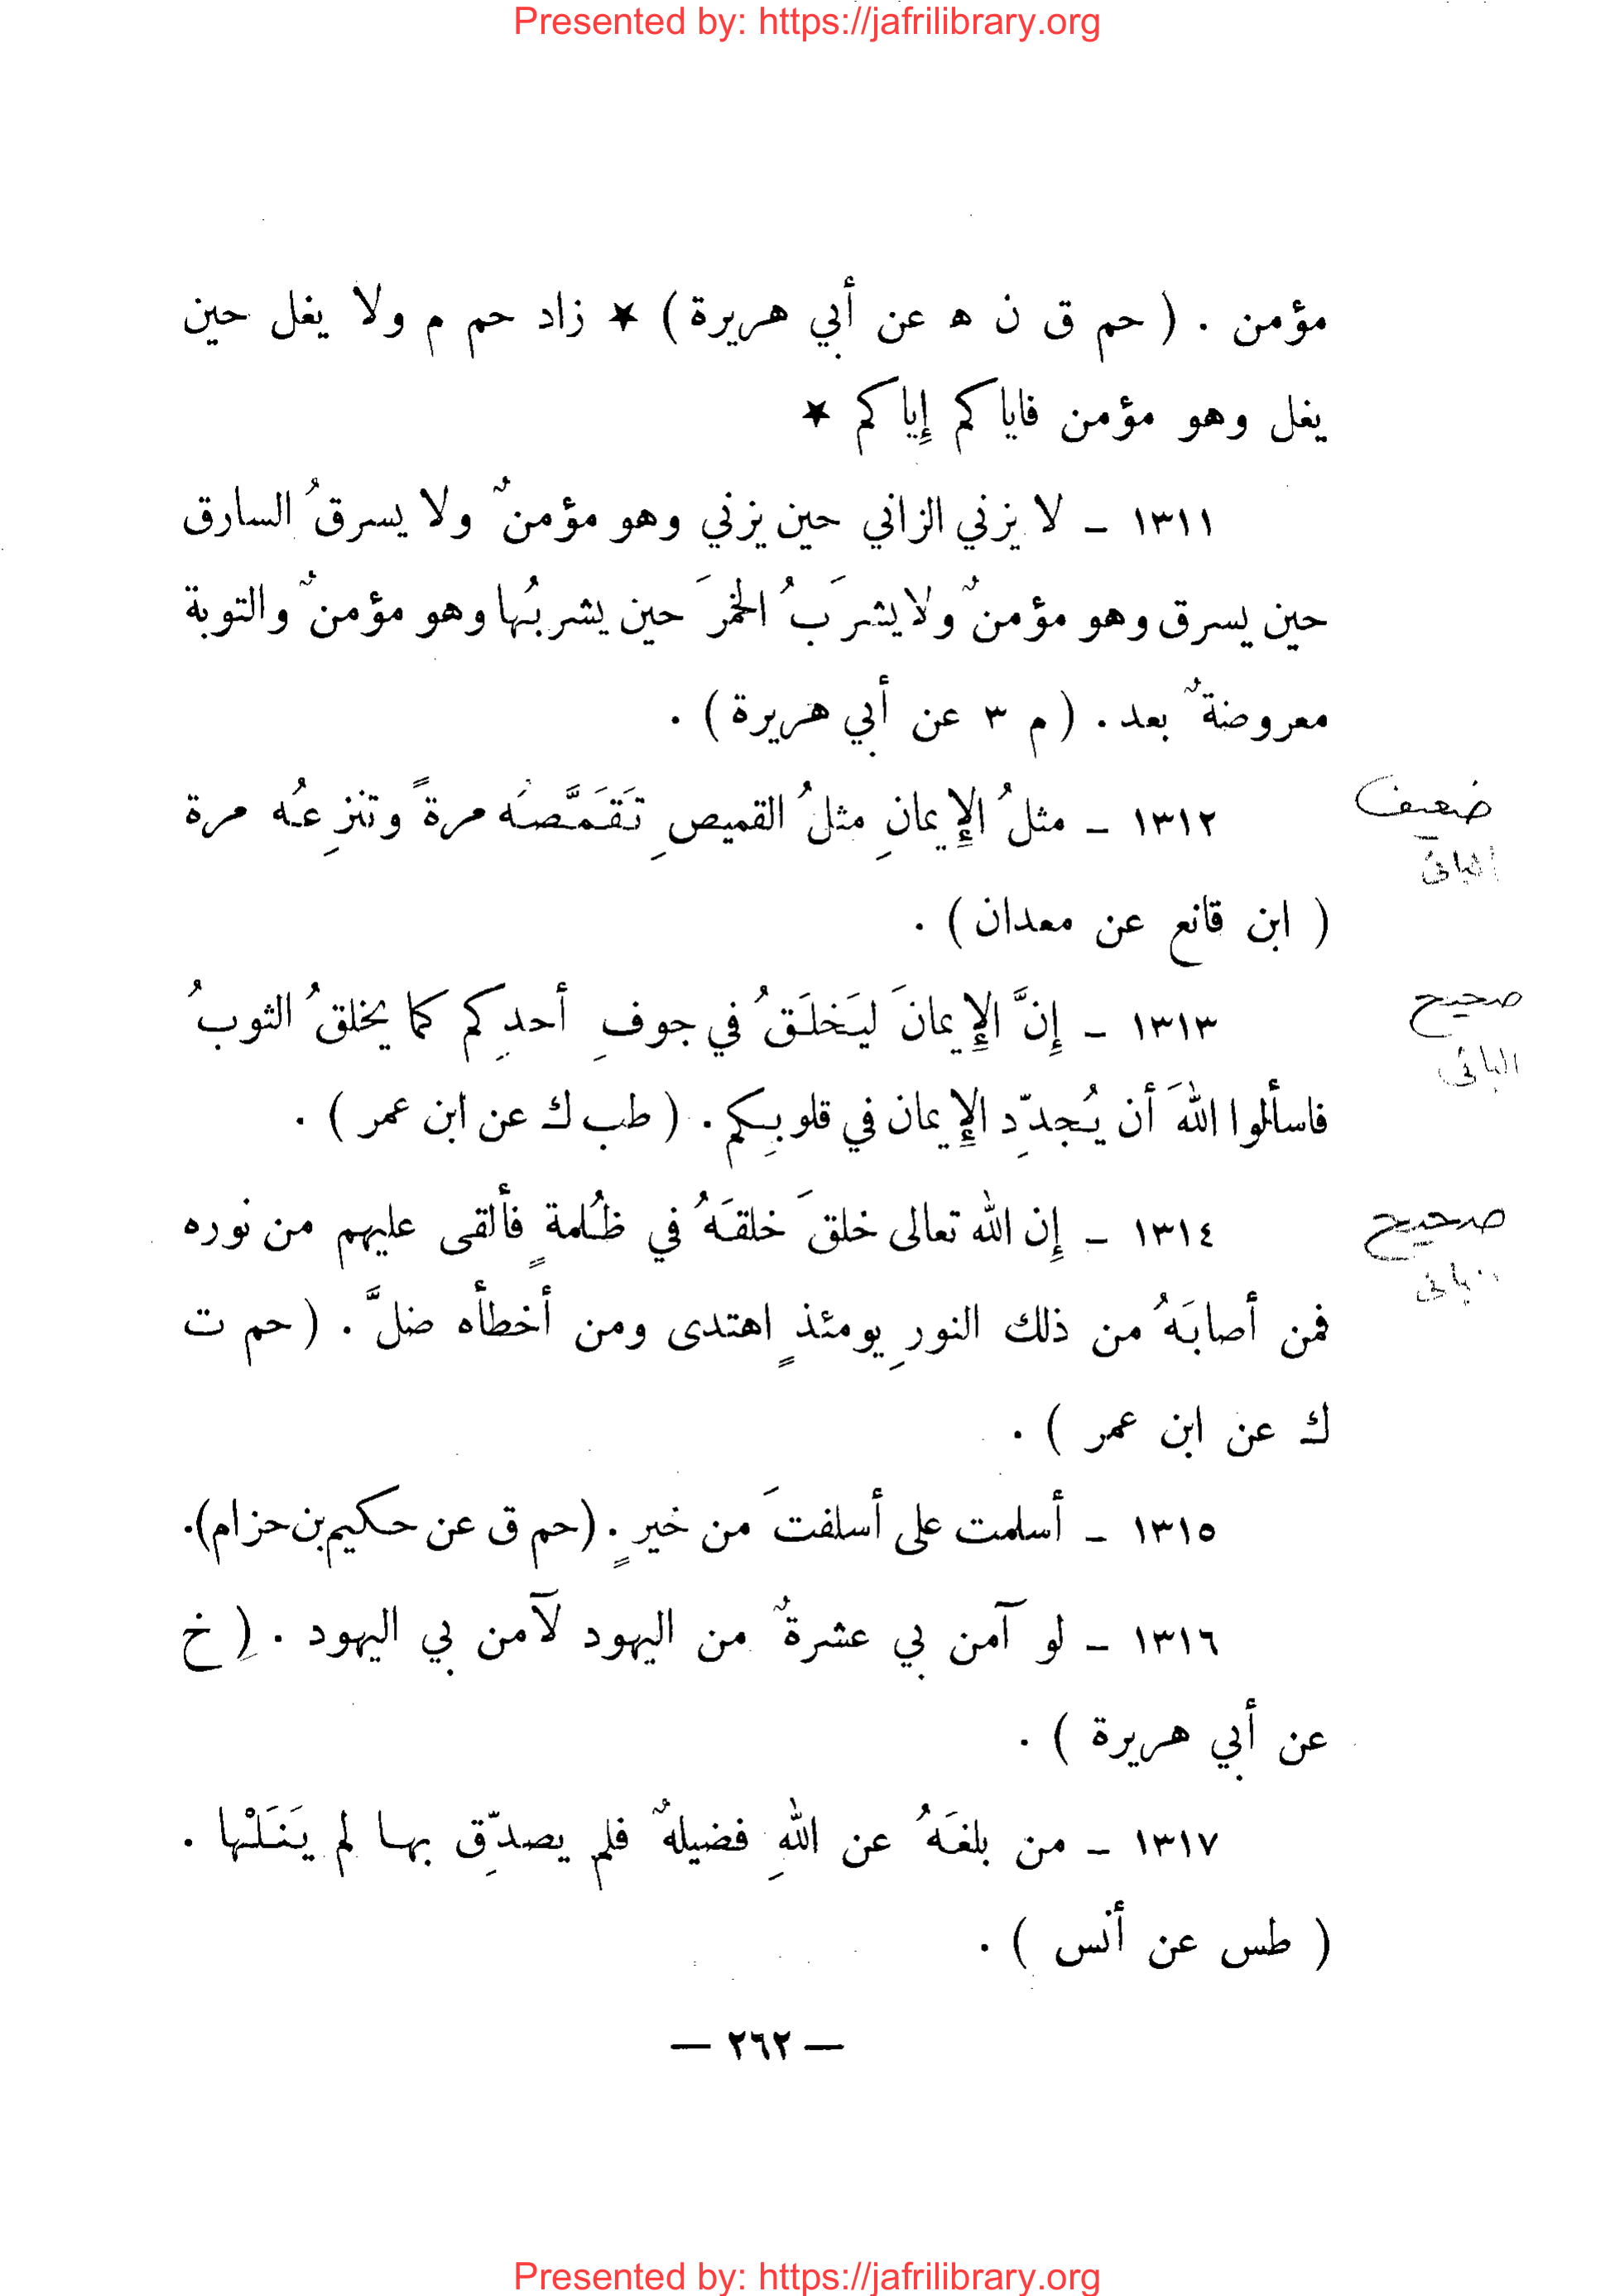 Presented by: https://jafrilibrary.org
مؤمن . ( حم ق ن ه عن أبي هريرة ) ★ زاد حم م ولا يغل حين
يغل وهو مؤمن فاياكم إياكم ★
١٣١١ ـ لا يزني الزاني حين يزني وهو مؤمنٌ ولا يسرقُ السارق
حين يسرق وهو مؤمنٌ ولا يشرَبُ الخمرَ حين يشربُها وهو مؤمنٌ والتوبة
معروضةٌ بعد . ( م ٣ عن أبي هريرة ) .
١٣١٢ ـ مثلُ الإِيمانِ مثلُ القميصِ تَقَمَّصَه مرةً وتنزِعُه مرة
ضعيف
البانى
( ابن قانع عن معدان ) .
١٣١٣ ـ إِنَّ الإِيمانَ ليَخلَقُ في جوفِ أحدِكم كما يخلقُ الثوبُ
صحيح
البانى
فاسألوا اللهَ أن يُجدِّد الإِيمان في قلوبِكم . ( طب ك عن ابن عمر ) .
١٣١٤ ـ إِن الله تعالى خلقَ خلقَهُ في ظُلمةٍ فألقى عليهم من نوره
صحيح
فمن أصابَهُ من ذلك النورِ يومئذٍ اهتدى ومن أخطأه ضلَّ . ( حم ت
ك عن ابن عمر ) .
١٣١٥ ـ أسلمت على أسلفتَ من خيرٍ . ( حم ق عن حكيم بن حزام ) .
١٣١٦ ـ لو آمن بي عشرةٌ من اليهود لآمن بي اليهود . ( خ
عن أبي هريرة ) .
١٣١٧ ـ من بلغَهُ عن اللهِ فضيلهٌ فلم يصدِّق بها لم يَنَلْها .
( طس عن أنس ) .
— ٢٦٢ —
Presented by: https://jafrilibrary.org